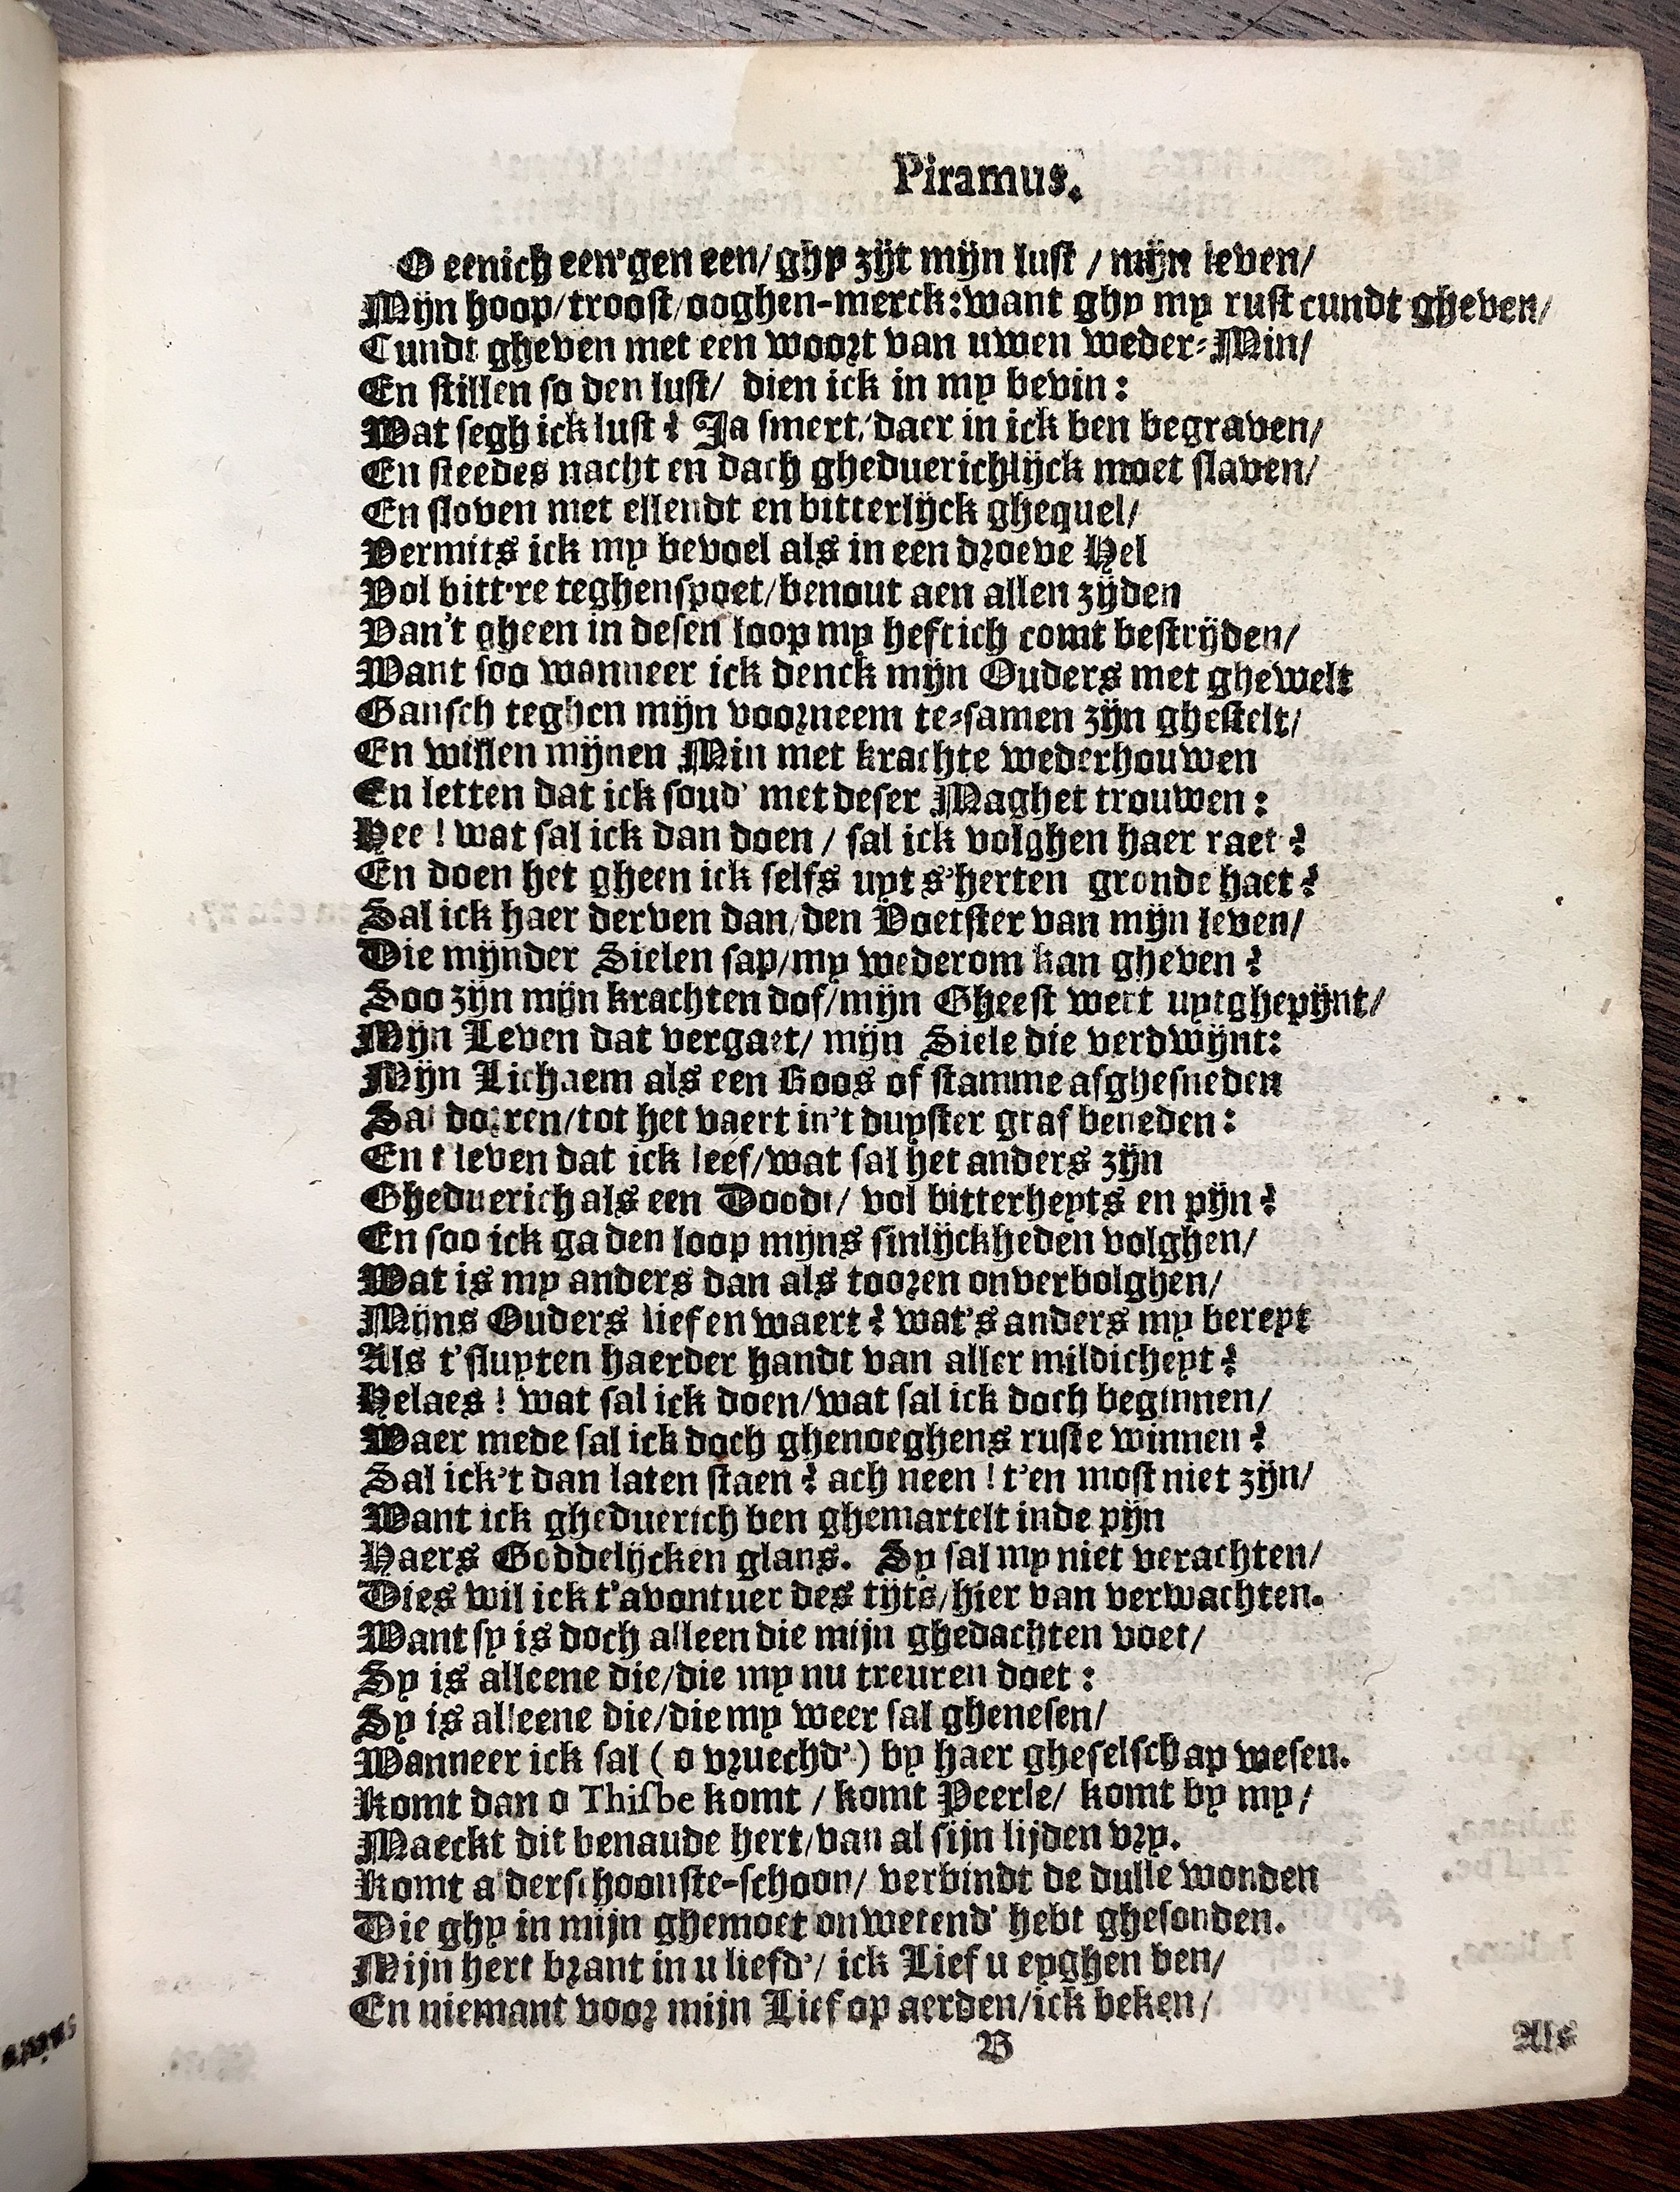 Piramus.
O eenich een'gen een/ ghy zijt mijn lust / mijn leven/
Mijn hoop/troost/ooghen-merck: want ghy my rust cundt gheven/
Cundt gheven met een woort van uwen weder-Min/
En stillen so den lust/ dien ick in my bevin:
Wat segh ick lust? Ja smert/ daer in ick ben begraven/
En steedes nacht en dach gheduerichlijck moet slaven/
En sloven met ellendt en bitterlijck ghequel/
Vermits ick my bevoel als in een droeve Hel
Vol bitt're teghenspoet/benout aen allen zijden
Van't gheen in desen loop my heftich comt bestrijden/
Want soo wanneer ick denck mijn Ouders met ghewelt
Gansch teghen mijn voorneem te-samen zijn ghestelt/
En willen mijnen Min met krachte wederhouwen
En letten dat ick soud' met deser Maghet trouwen:
Hee! wat sal ick dan doen / sal ick volghen haer raet?
En doen het gheen ick selfs uyt s'herten gronde haet?
Sal ick haer derven dan/den Voetster van mijn leven/
Die mijnder Sielen sap/my wederom kan gheven?
Soo zijn mijn krachten dof/mijn Gheest wert uytghepijnt/
Mijn Leven dat vergaet/ mijn Siele die verdwijnt:
Mijn Lichaem als een Roos of stamme afghesneden
Sal dorren/tot het vaert in't duyster graf beneden:
En t leven dat ick leef/wat sal het anders zijn
Gheduerich als een Doodt/ vol bitterheyts en pijn?
En soo ick ga den loop mijns sinlijckheden volghen/
Wat is my anders dan als tooren onverbolghen/
Mijns Ouders lief en waert? wat's anders my bereyt
Als t'sluyten haerder handt van aller mildicheyt?
Helaes! wat sal ick doen/wat sal ick doch beginnen/
Waer mede sal ick doch ghenoeghens ruste winnen?
Sal ick't dan laten staen? ach neen! t'en most niet zijn/
Want ick gheduerich ben ghemartelt inde pijn
Haers Goddelijcken glans. Sy sal my niet verachten/
Dies wil ick t'avontuer des tijts/hier van verwachten.
Want sy is doch alleen die mijn ghedachten voet/
Sy is alleene die/die my nu treuren doet:
Sy is alleene die/die my weer sal ghenesen/
Wanneer ick sal (o vruechd') by haer gheselschap wesen.
Komt dan o Thisbe komt / komt Peerle/ komt by my/
Maeckt dit benaude hert/van al sijn lijden vry.
Komt alderschoonste-schoon/ verbindt de dulle wonden
Die ghy in mijn ghemoet onwetend' hebt ghesonden.
Mijn hert brant in u liefd'/ ick Lief u eyghen ben/
En niemant voor mijn Lief op aerden/ick beken/
B
Als